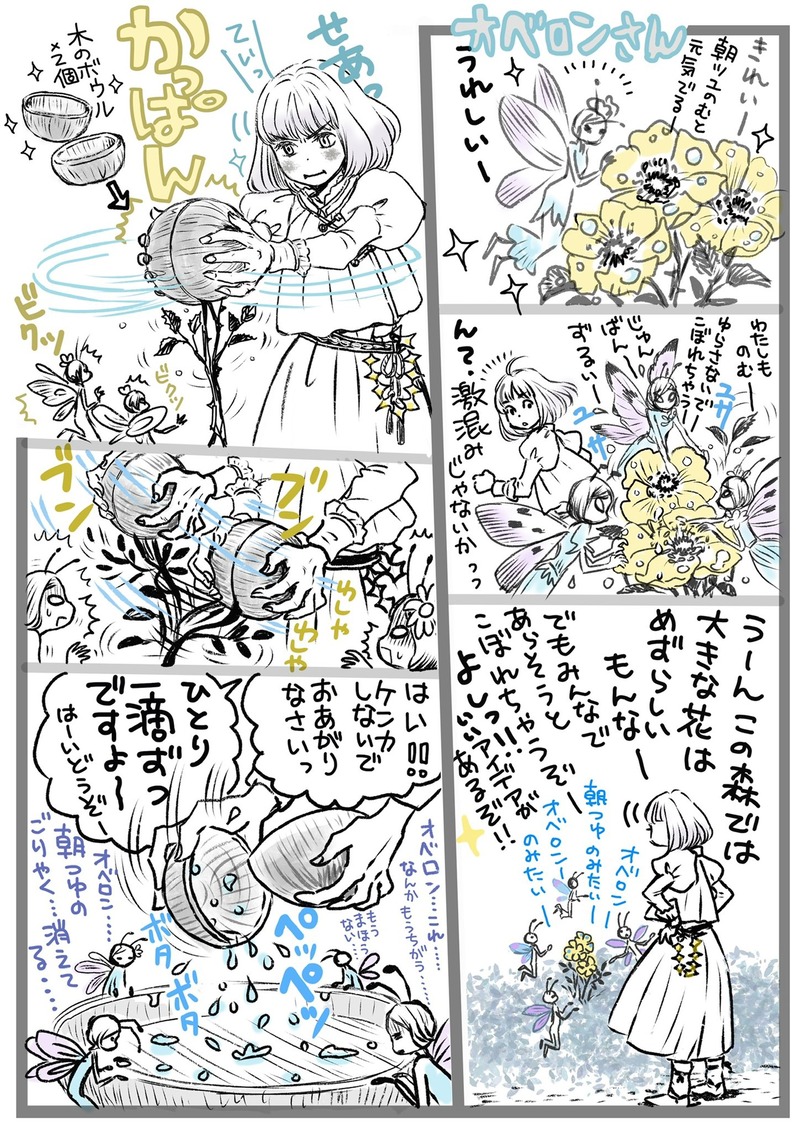 オベロンさん
きれいー
朝ツユのむと
元気でるー
うれしいー
わたしも
のむー
ゆらさないで
こぼれちゃうー
ユサ
じゅん
ばんー
ずるいー
ユサ
ん?激混みじゃないかっっ
うーんこの森では
大きな花は
めずらしい
もんなー
でもみんなで
あらそうと
こぼれちゃうぞー
よしっ!!いいアイデアが
あるぞ!!
オベロン
朝つゆのみたいー
オベロンー
のみたいー
せあっ
てぃっ
かっぱん
木のボウル
×2個
ビクッ
ビクッ
ブン
ブン
わしゃ
わしゃ
はい!!
ケンカ
しないで
おあがり
なさいっ
ひとり
一滴ずっ
ですよ〜
はーいどうぞー
オベロン…これ……
なんかもうちがう……
もう
まほう
ない…
ペッペッ
ボタ
ボタ
オベロン……
朝つゆの
ごりやく…消えて
る……